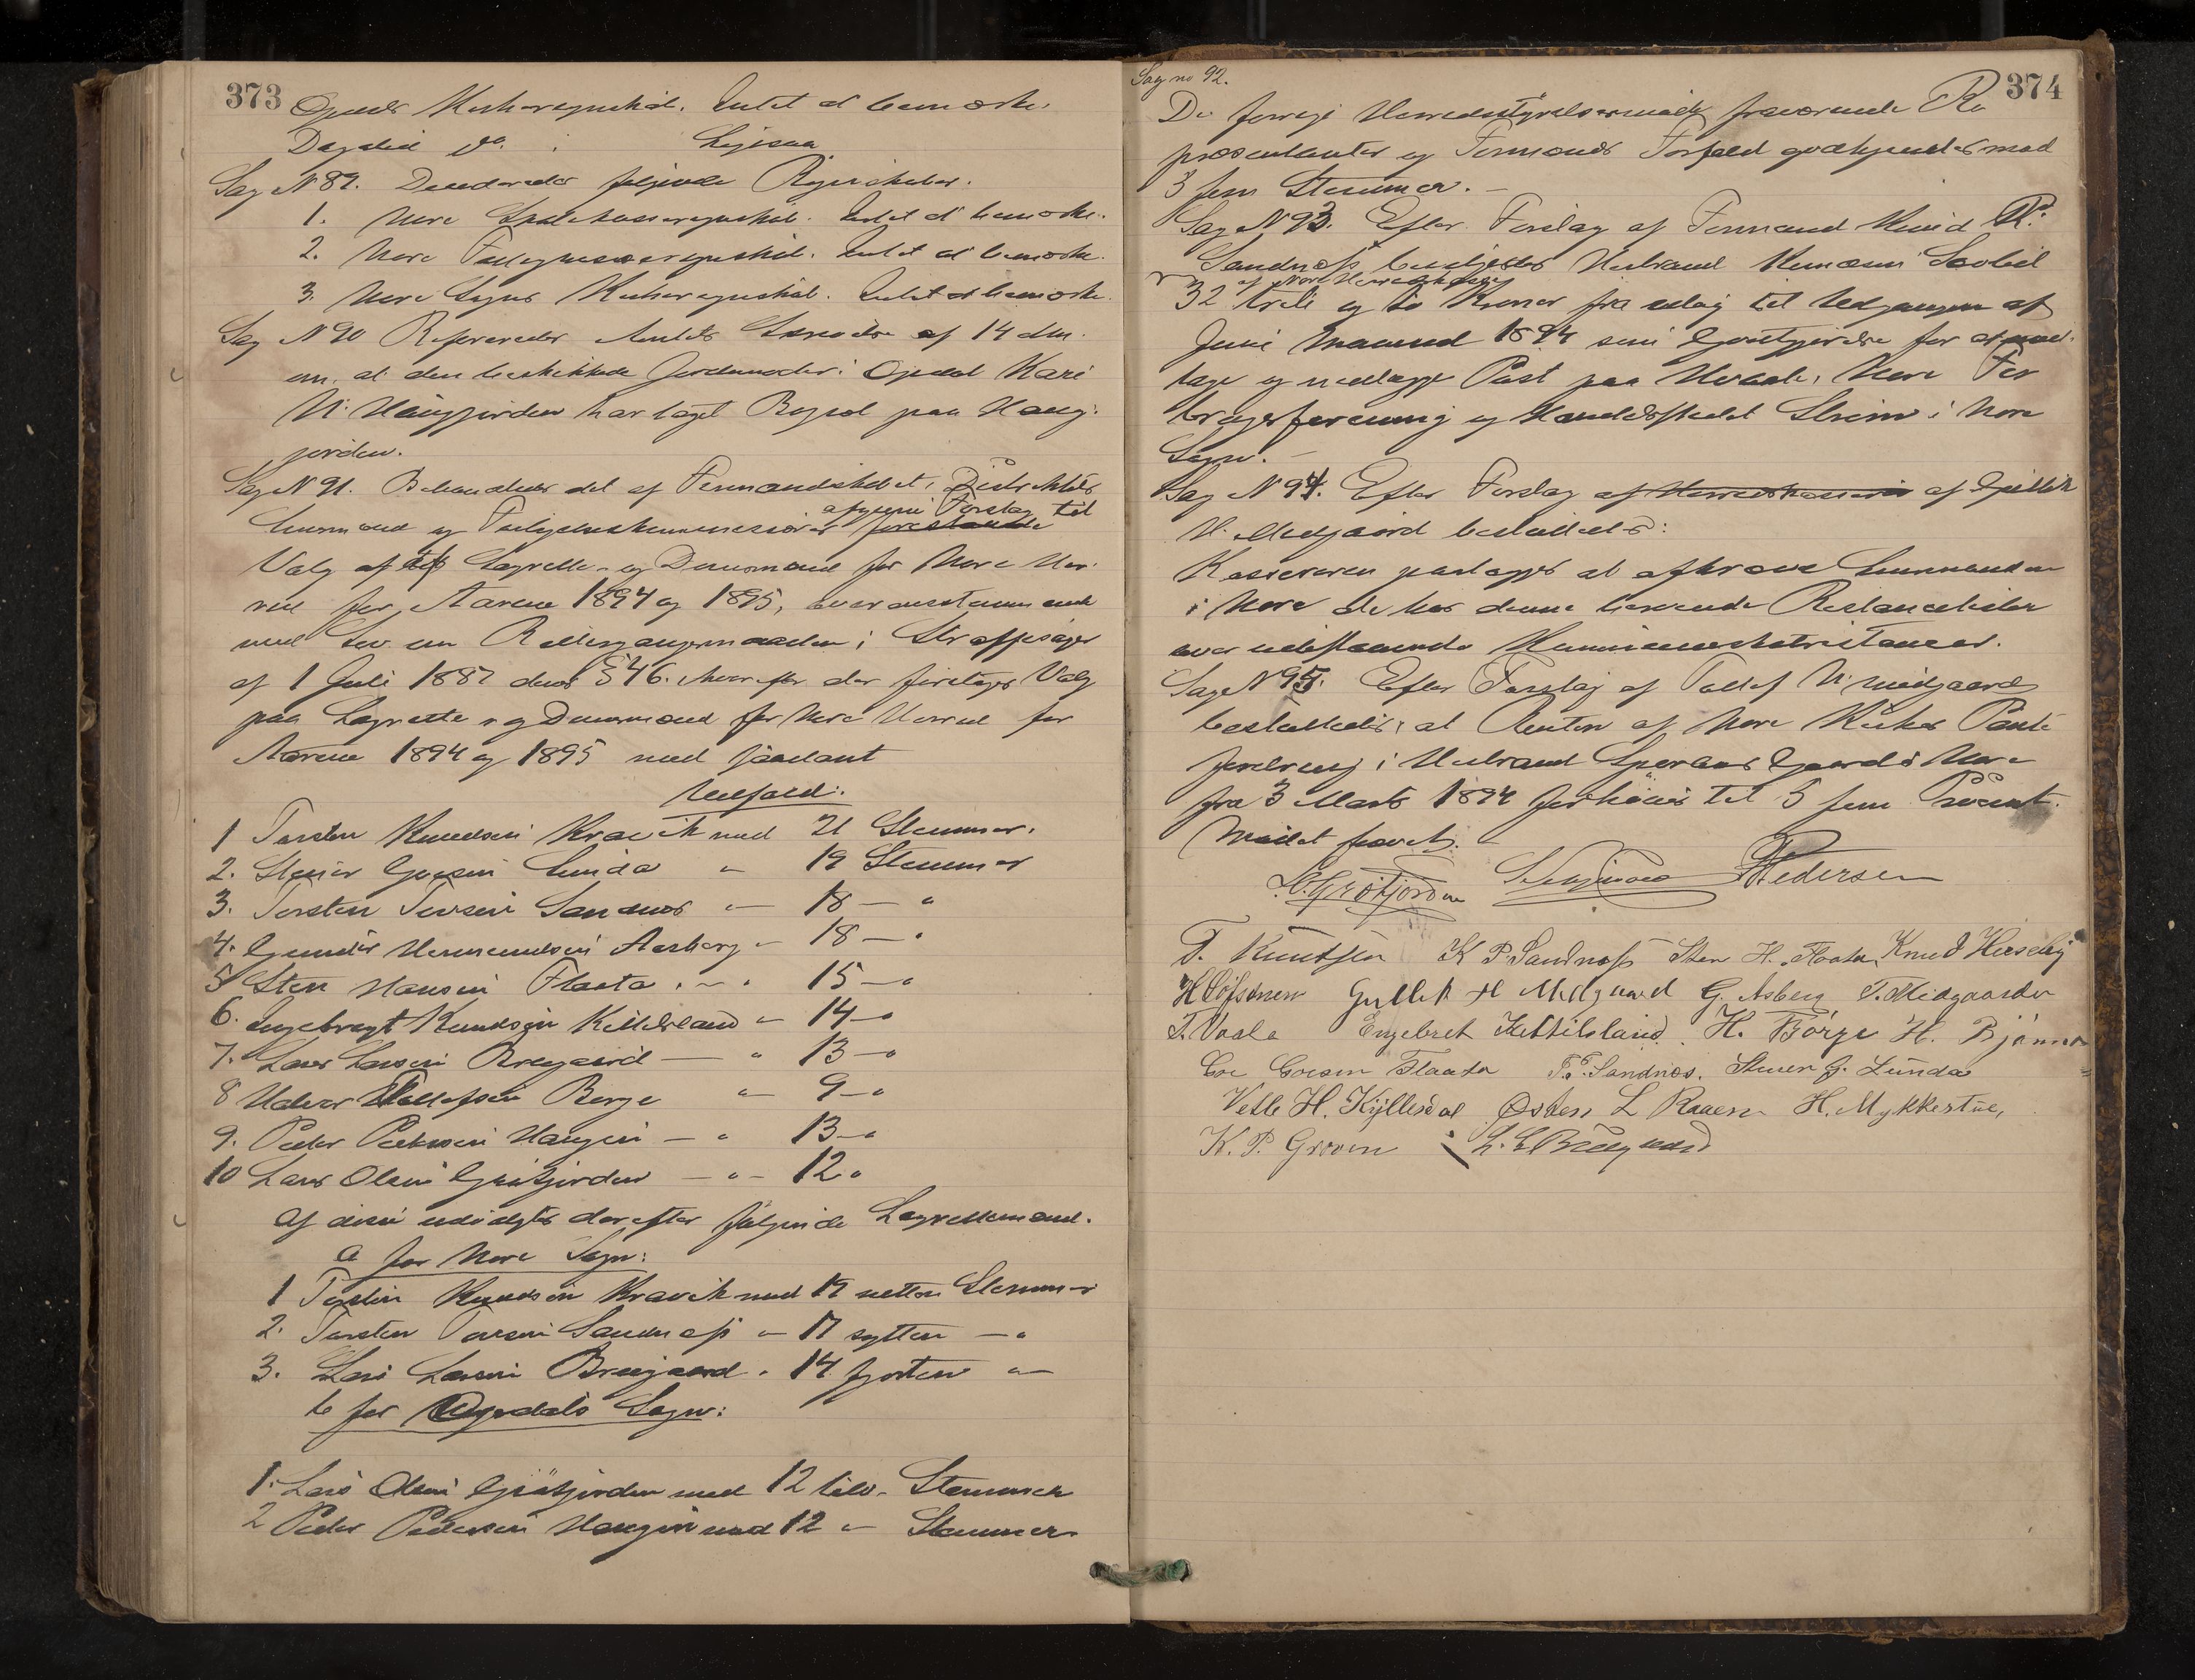 373
Opdals Kirkeregnskab. Intet at bemærke.
Dagalid do. Ligesaa
Sag N 89. Decideredes følgende Regnskaber.
1. Nore Skolekasseregnskab. Intet at bemærke.
2. Nore Fattigkasseregnskab. Intet at bemærke.
3. Nore Sogns Kirkeregnskab. Intet at bemærke.
Sag N 90 Refereredes Amtets Skrivelse af 14 dm.
om, at den beskikkede Jordemoder i Opdal Kari
N. Haugjorden har taget Bopæl paa Haug-
jorden.
Sag N 91. Behandledes det af Formandskabet, Distriktets
Lensmand og Forligelseskommissærer afgivne Forslag til
Valg af Lagrette- og Domsmænd for Nore Her-
red for Aarene 1894 og 1895, overensstemmende
med Lov om Rettergangsmaaden i Straffesager
af 1 Juli 1887 dens § 46. hvorefter der foretoges Valg
paa Lagrette- og Domsmænd for Nore Herred for
Aarene 1894 og 1895 med saadant
Udfald:
1 Torsten Knudsen Kravik med 21 Stemmer.
2. Stener Goesen Lunda " 19 Stemmer
3. Torsten Torsen Sandnes " 18 — "
4. Gunder Hermandsen Aasberg " 18 — "
5 Sten Hansen Flaata " 15 — "
6. Engebregt Knudsen Kittilsland " 14 — "
7. Lars Larsen Bregaard — " 13 — "
8 Halvor Tollefsen Børge " 9 — "
9. Peder Pedersen Haugen — " 13 — "
10 Lars Olsen Grøtjorden — " — 12 "
Af disse udvalgtes derefter følgende Lagrettemænd.
a for Nore Sogn:
1 Torsten Knudsen Kravik med 19 nitten Stemmer
2. Torsten Torsen Sandness " 17 sytten — "
3. Lars Larsen Bregaard " 14 fjorten "
b for Opdals Sogn:
1. Lars Olsen Grøtjorden med 12 tolv Stemmer
2 Peder Pedersen Haugen med 12 " Stemmer
374
Sag no 92.
De forrige Herredsstyrelsesmøde fraværende Re
præsentanter og Formænds Forfald godkjendes mod
3 fem Stemmer. —
Sag N 93. Efter Forslag af Formand Knud P.
Sandness bevilgedes Herbrand
af Nore Herredskasse
32 treti og to Kroner fra idag til Udgangen af
Juni Maaned 1894 som Godtgjørelse for at mod-
tage og nedlægge Post paa Hvaale, Nore For
brugsforening og Handelsstedet Skrim i Nore
Sogn. —
Sag N 94. Efter Forslag af Herredskassereren af Gullik
H. Medgaard besluttedes:
Kassereren paalægges at afkræve Lensmanden
i Nore de hos denne beroende Restancelister
over udestaaende Kommuneskatrestancer.
Sag N 95. Efter Forslag af Tollef N. Midgaard
besluttedes, at Renten af Nore Kirkes Pante
fordring i Herbrand Gaard i Nore
fra 3 Marts 1894 forhøies til 5 fem Procent.
Mødet hævet.
L. O. Grøtjorden Pedersen
T. Knutsen K P. Sandness Sten H. Flaata Knud
Gullik H Midgaard G. Asberg T. Midgaarden
T. Vaale Engebret Kittilsland. H. Børge H. Bjønner
Goe Goesen Flaata T. T. Sandnes. Stener G. Lunda
Vetle H. Kjøllesdal Østen L Raaen H. Mykkestue,
K. P. Groven L. L Breegaard